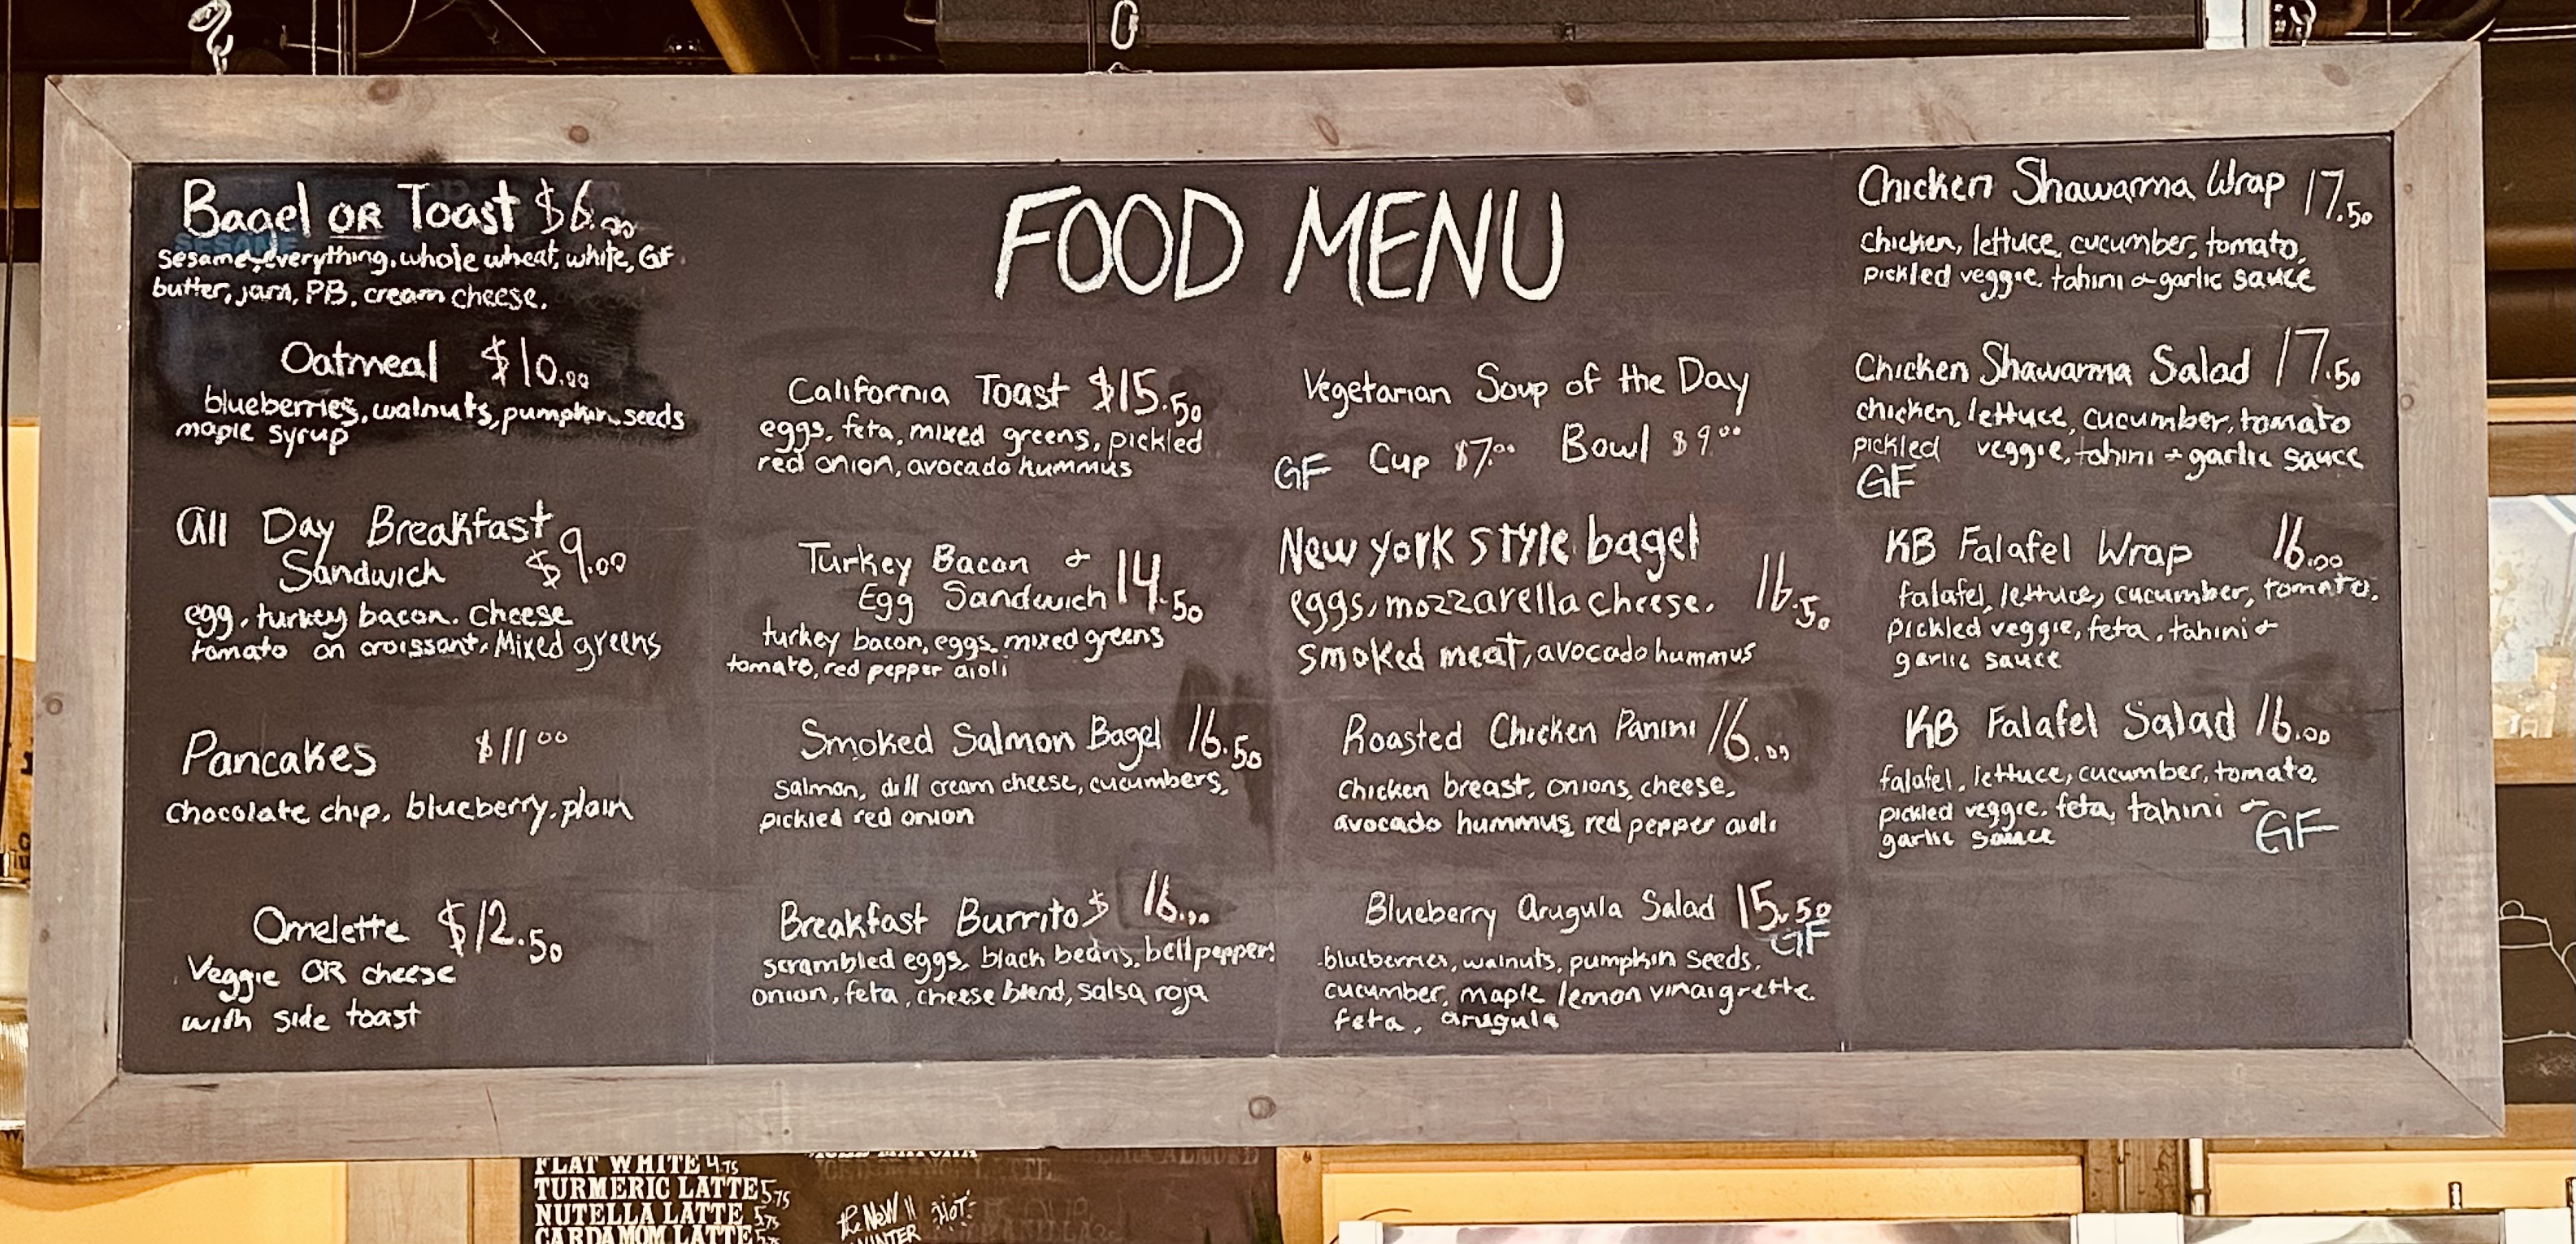 Bagel OR Toast $6.00
sesame, everything, whole wheat, white, GF
butter, jam, PB, cream cheese.
Oatmeal $10.00
blueberries, walnuts, pumpkin seeds
maple syrup
All Day Breakfast
Sandwich $9.00
egg, turkey bacon, cheese
tomato on croissant, Mixed greens
Pancakes $11.00
chocolate chip, blueberry, plain
Omelette $12.50
Veggie OR cheese
with side toast
FOOD MENU
California Toast $15.50
eggs, feta, mixed greens, pickled
red onion, avocado hummus
Turkey Bacon &
Egg Sandwich 14.50
turkey bacon, eggs, mixed greens
tomato, red pepper aioli
Smoked Salmon Bagel 16.50
salmon, dill cream cheese, cucumbers,
pickled red onion
Breakfast Burrito $ 16.00
scrambled eggs, black beans, bell peppers
onion, feta, cheese blend, salsa roja
Vegetarian Soup of the Day
GF Cup $7.00 Bowl $9.00
New york style bagel
eggs, mozzarella cheese. 16.50
smoked meat, avocado hummus
Roasted Chicken Panini 16.00
chicken breast, onions, cheese,
avocado hummus, red pepper aioli
Blueberry Arugula Salad 15.50
GF
blueberries, walnuts, pumpkin seeds,
cucumber, maple lemon vinaigrette
feta, arugula
Chicken Shawarma Wrap 17.50
chicken, lettuce, cucumber, tomato,
pickled veggie, tahini & garlic sauce
Chicken Shawarma Salad 17.50
chicken, lettuce, cucumber, tomato
pickled veggie, tahini + garlic sauce
GF
KB Falafel Wrap 16.00
falafel, lettuce, cucumber, tomato,
pickled veggie, feta, tahini &
garlic sauce
KB Falafel Salad 16.00
falafel, lettuce, cucumber, tomato,
pickled veggie, feta, tahini &
garlic sauce GF
FLAT WHITE 4.75
TURMERIC LATTE 5.75
NUTELLA LATTE 5.75
CARDAMOM LATTE
the NEW
WINTER
HOT